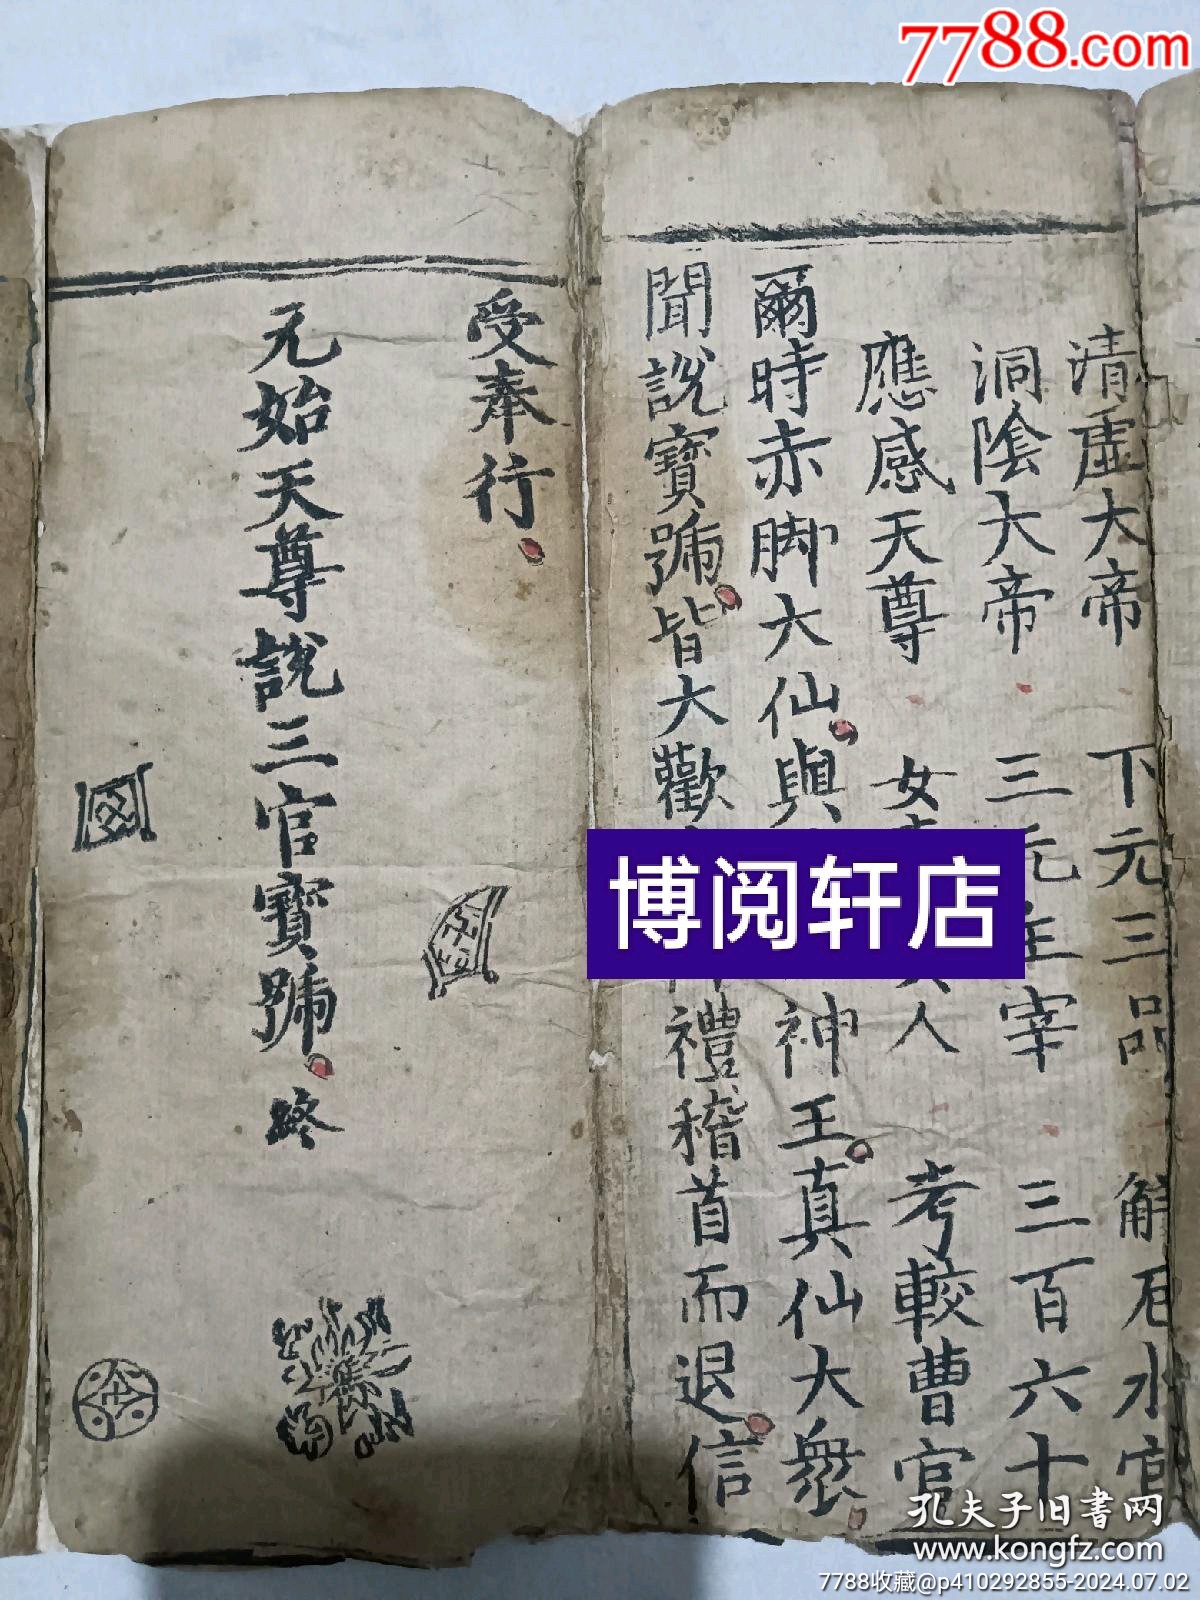 7788.com
清虛大帝 下元三品 解厄水官
洞陰大帝 三元主宰 三百六十
應感天尊 女 人 考較曹官
爾時赤脚大仙與 神王真仙大衆
聞說寳號皆大歡 禮稽首而退信
受奉行
元始天尊說三官寳號 終
博阅轩店
孔夫子旧书网
www.kongfz.com
7788收藏@p410292855-2024.07.02